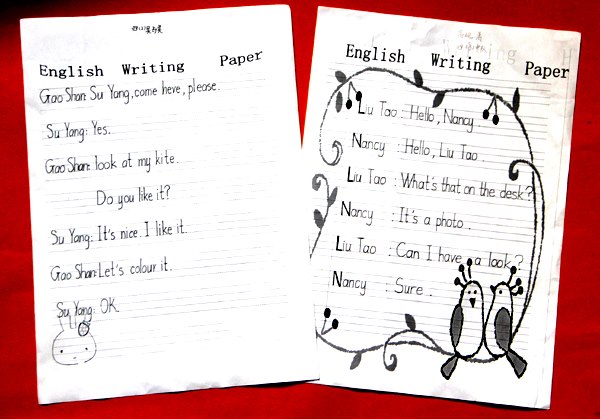 English Writing Paper
Gao Shan: Su Yang, come here, please.
Su Yang: Yes.
Gao Shan: look at my kite.
Do you like it?
Su Yang: It's nice. I like it.
Gao Shan: Let's colour it.
Su Yang: OK.
English Writing Paper
Liu Tao: Hello, Nancy.
Nancy: Hello, Liu Tao.
Liu Tao: What's that on the desk?
Nancy: It's a photo.
Liu Tao: Can I have a look?
Nancy: Sure.